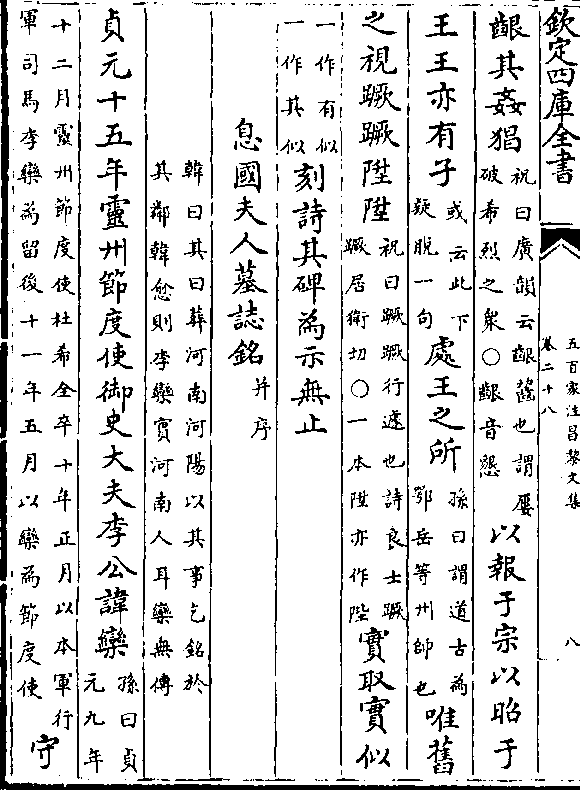 欽定四庫全書
五百家注昌黎文集
卷二十八
八
齦其姦猖祝曰廣韻云齦齧也謂屢破希烈之衆○齦音懇以報于宗以昭于
王王亦有子或云此下疑脫一句處王之所孫曰謂道古為鄂岳等州帥也唯舊
之視蹶蹶陞陞祝曰蹶蹶行遽也詩良士蹶蹶居衛切○一本陞亦作陛實取實似
一作有似一作其似刻詩其碑為示無止
息國夫人墓誌銘并序
韓曰其曰葬河南河陽以其事乞銘於其鄰韓愈則李欒實河南人耳欒無傳
貞元十五年靈州節度使御史大夫李公諱欒孫曰貞元九年
十二月靈州節度使杜希全卒十年正月以本軍行軍司馬李欒為留後十一年五月以欒為節度使守